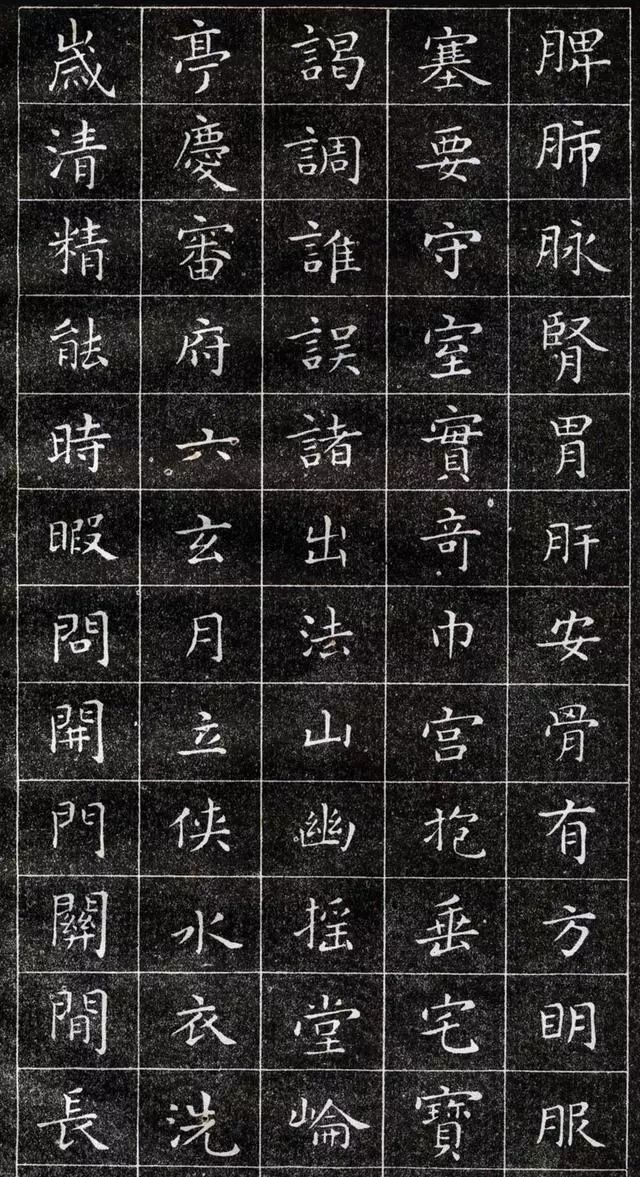 脾肺脉腎胃肝安骨有方眀服
塞要守室實竒巾宫抱垂宅寶
謁調誰誤諸出法山幽摇堂崘
亭慶審府六玄月立侠水衣洗
嵗清精能時暇問開門關閒長